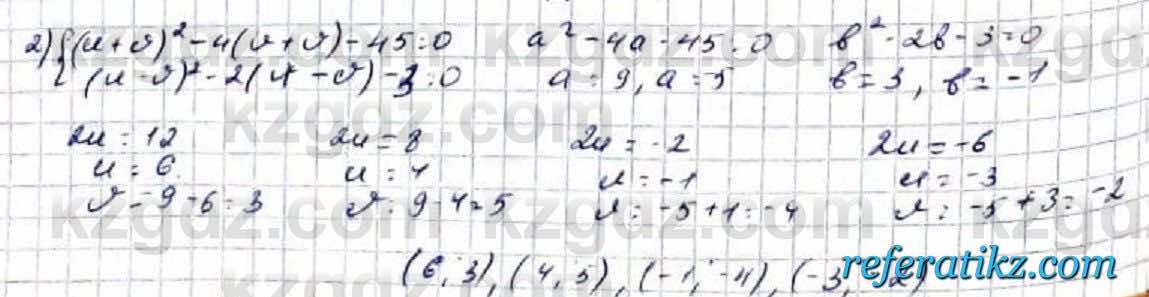 2) { (u+v)² - 4(u+v) - 45 = 0   a² - 4a - 45 = 0   b² - 2b - 3 = 0
(u-v)² - 2(u-v) - 3 = 0   a = 9, a = -5   b = 3, b = -1
2u = 12   2u = 8   2u = -2   2u = -6
u = 6   u = 4   u = -1   u = -3
v = 9 - 6 = 3   v = 9 - 4 = 5   v = -5 + 1 = -4   v = -5 + 3 = -2
(6; 3), (4; 5), (-1; -4), (-3; -2)
kzgdz.com
referatikz.com